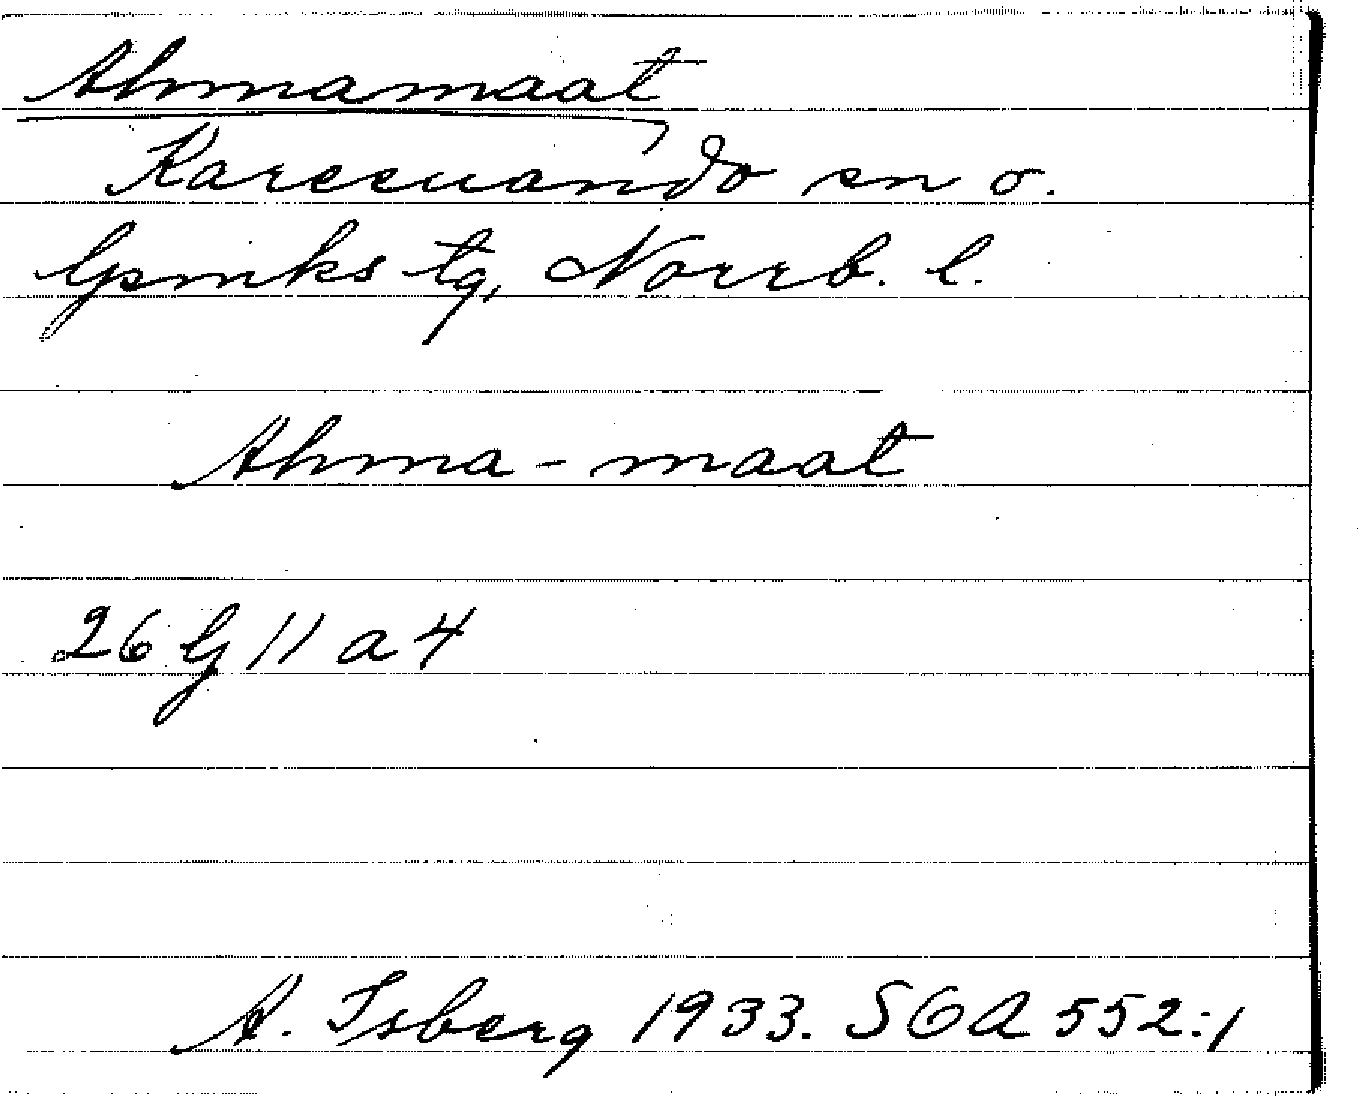 Ahmamaat
Karesuando sn o.
lpmks tg, Norrb. l.
Ahma - maat
26 G 11 a 4
A. Isberg 1933. SOA 552:1